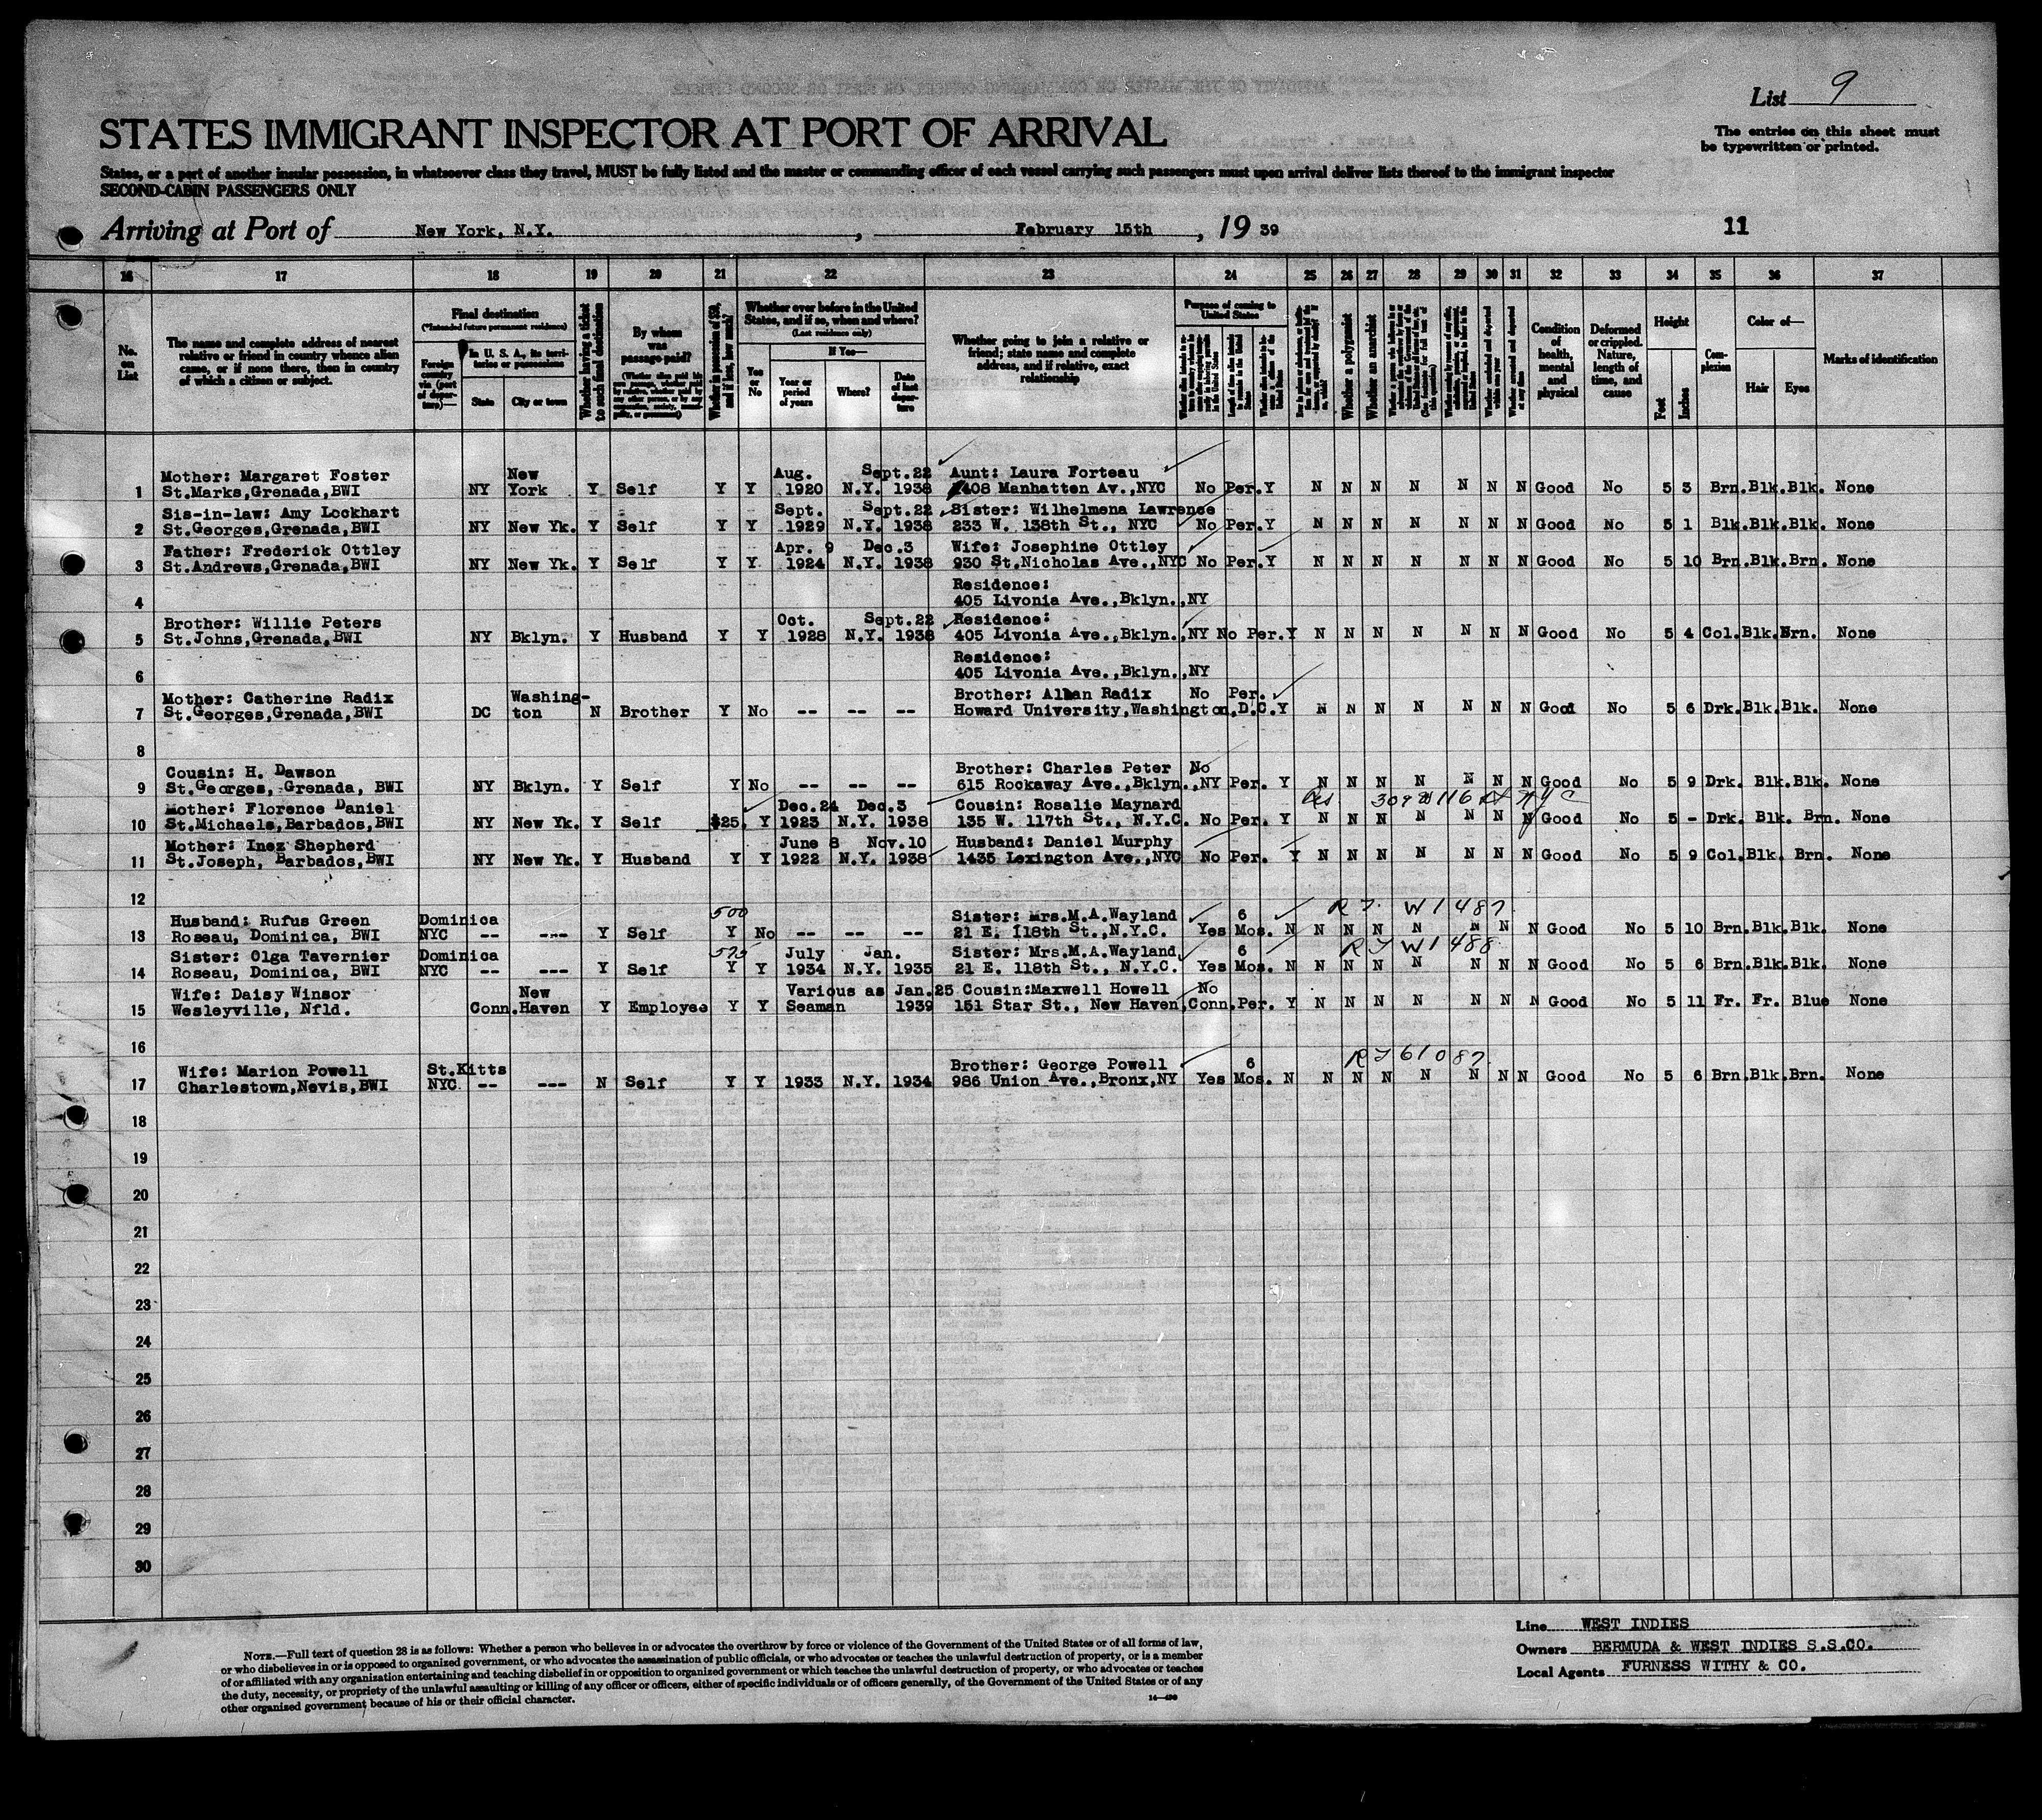 List 9
The entries on this sheet must
be typewritten or printed.
STATES IMMIGRANT INSPECTOR AT PORT OF ARRIVAL
States, or a port of another insular possession, in whatsoever class they travel, MUST be fully listed and the master or commanding officer of each vessel carrying such passengers must upon arrival deliver lists thereof to the immigrant inspector
SECOND-CABIN PASSENGERS ONLY
Arriving at Port of New York, N.Y. , February 15th , 19 39 11
16 17 18 19 20 21 22 23 24 25 26 27 28 29 30 31 32 33 34 35 36 37
No. on List
The name and complete address of nearest relative or friend in country whence alien came, or if none there, then in country of which a citizen or subject.
Final destination
(*Intended future permanent residence)
Foreign country via (port of departure)—
In U. S. A., its territories or possessions
State
City or town
Whether having a ticket to such final destination
By whom was passage paid?
Whether in possession of $50, and if less, how much?
Whether ever before in the United States, and if so, when and where?
(Last residence only)
Yes or No
If Yes—
Year or period of years
Where?
Date of last departure
Whether going to join a relative or friend; state name and complete address, and if relative, exact relationship
Purpose of coming to United States
Whether a polygamist
Whether an anarchist
Condition of health, mental and physical
Deformed or crippled. Nature, length of time, and cause
Height
Feet
Inches
Complexion
Color of—
Hair
Eyes
Marks of identification
Mother: Margaret Foster New Aug. Sept.22 Aunt: Laura Forteau
1 St.Marks,Grenada,BWI NY York Y Self Y Y 1920 N.Y. 1938 408 Manhatten Av.,NYC No Per. Y N N N N N N N Good No 5 3 Brn. Blk. Blk. None
Sis-in-law: Amy Lockhart Sept. Sept.22 Sister: Wilhelmena Lawrence
2 St.Georges,Grenada,BWI NY New Yk. Y Self Y Y 1929 N.Y. 1938 233 W. 138th St., NYC No Per. Y N N N N N N N Good No 5 1 Blk. Blk. Blk. None
Father: Frederick Ottley Apr. 9 Dec.3 Wife: Josephine Ottley
3 St.Andrews,Grenada,BWI NY New Yk. Y Self Y Y 1924 N.Y. 1938 930 St.Nicholas Ave.,NYC No Per. Y N N N N N N N Good No 5 10 Brn. Blk. Brn. None
Residence:
4 405 Livonia Ave.,Bklyn.,NY
Brother: Willie Peters Oct. Sept.22 Residence:
5 St.Johns,Grenada,BWI NY Bklyn. Y Husband Y Y 1928 N.Y. 1938 405 Livonia Ave.,Bklyn.,NY No Per. Y N N N N N N N Good No 5 4 Col. Blk. Brn. None
Residence:
6 405 Livonia Ave.,Bklyn.,NY
Mother: Catherine Radix Washing- Brother: Allan Radix No Per.
7 St.Georges,Grenada,BWI DC ton N Brother Y No -- -- -- Howard University,Washington,D.C. Y N N N N N N N Good No 5 6 Drk. Blk. Blk. None
8
Cousin: H. Dawson Brother: Charles Peter No
9 St.Georges, Grenada, BWI NY Bklyn. Y Self Y No -- -- -- 615 Rockaway Ave.,Bklyn.,NY Per. Y N N N N N N N Good No 5 9 Drk. Blk. Blk. None
Mother: Florence Daniel Dec.24 Dec.3 Cousin: Rosalie Maynard 309 W 116 St NYC
10 St.Michaels,Barbados,BWI NY New Yk. Y Self $25. Y 1923 N.Y. 1938 135 W. 117th St., N.Y.C. No Per. Y N N N N N N N Good No 5 - Drk. Blk. Brn. None
Mother: Inez Shepherd June 8 Nov.10 Husband: Daniel Murphy
11 St.Joseph, Barbados,BWI NY New Yk. Y Husband Y Y 1922 N.Y. 1938 1435 Lexington Ave.,NYC No Per. Y N N N N N N N Good No 5 9 Col. Blk. Brn. None
12
Husband: Rufus Green Dominica 500 Sister: Mrs.M.A.Wayland 6 W1487
13 Roseau, Dominica, BWI NYC -- --- Y Self Y No -- -- -- 21 E. 118th St.,N.Y.C. Yes Mos. N N N N N N N N Good No 5 10 Brn. Blk. Blk. None
Sister: Olga Tavernier Dominica 575 July Jan. Sister: Mrs.M.A.Wayland 6 W1488
14 Roseau, Dominica, BWI NYC -- --- Y Self Y Y 1934 N.Y. 1935 21 E. 118th St., N.Y.C. Yes Mos. N N N N N N N N Good No 5 6 Brn. Blk. Blk. None
Wife: Daisy Winsor New Various as Jan.25 Cousin:Maxwell Howell No
15 Wesleyville, Nfld. Conn. Haven Y Employee Y Y Seaman 1939 151 Star St., New Haven,Conn. Per. Y N N N N N N N Good No 5 11 Fr. Fr. Blue None
16
Wife: Marion Powell St.Kitts Brother: George Powell 6 61087
17 Charlestown,Nevis,BWI NYC. -- --- N Self Y Y 1933 N.Y. 1934 986 Union Ave.,Bronx,NY Yes Mos. N N N N N N N N Good No 5 6 Brn. Blk. Brn. None
18
19
20
21
22
23
24
25
26
27
28
29
30
Line WEST INDIES
Owners BERMUDA & WEST INDIES S.S.CO.
Local Agents FURNESS WITHY & CO.
NOTE.—Full text of question 28 is as follows: Whether a person who believes in or advocates the overthrow by force or violence of the Government of the United States or of all forms of law,
or who disbelieves in or is opposed to organized government, or who advocates the assassination of public officials, or who advocates or teaches the unlawful destruction of property, or is a member
of or affiliated with any organization entertaining and teaching disbelief in or opposition to organized government or which teaches the unlawful destruction of property, or who advocates or teaches
the duty, necessity, or propriety of the unlawful assaulting or killing of any officer or officers, either of specific individuals or of officers generally, of the Government of the United States or of any
other organized government because of his or their official character.